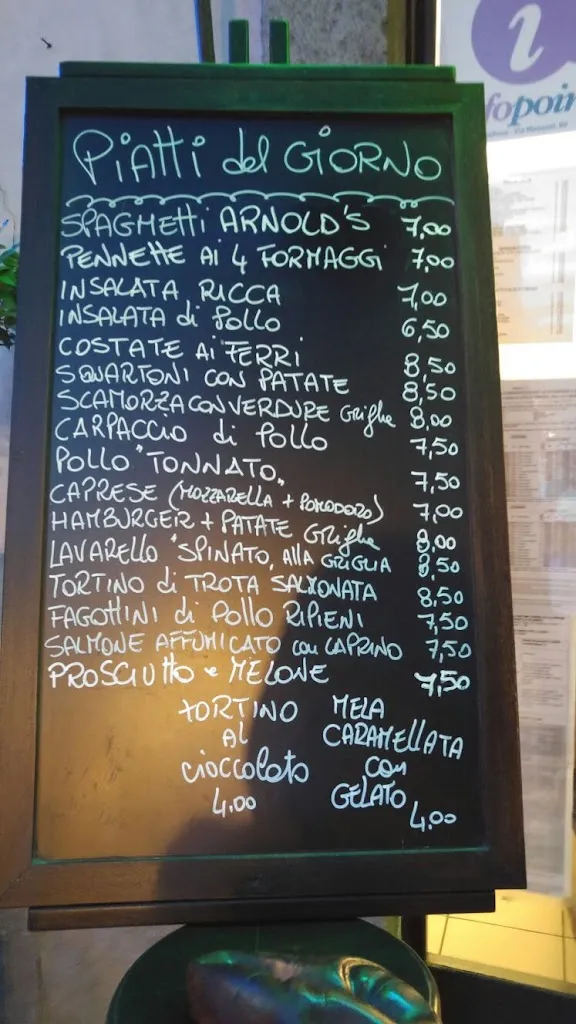 i
fopoin
PIATTI del GIORNO
SPAGHETTI ARNOLD'S 7,00
PENNETTE AI 4 FORMAGGI 7,00
INSALATA RICCA 7,00
INSALATA di Pollo 6,50
COSTATE AI FERRI 8,50
SQUARTONI CON PATATE 8,50
SCAMORZA CON VERDURE GRIGLIE 8,00
CARPACCIO di Pollo 7,50
POLLO "TONNATO" 7,50
CAPRESE (MOZZARELLA + POMODORO) 7,00
HAMBURGER + PATATE GRIGLIE 8,00
LAVARELLO "SPINATO" ALLA GRIGLIA 8,50
TORTINO di TROTA SALMONATA 8,50
FAGOTTINI di Pollo RIPIENI 7,50
SALMONE AFFUMICATO con CAPRINO 7,50
PROSCIUTTO e MELONE 7,50
TORTINO
AL
cioccolato
4.00
MELA
CARAMELLATA
con
GELATO
4,00